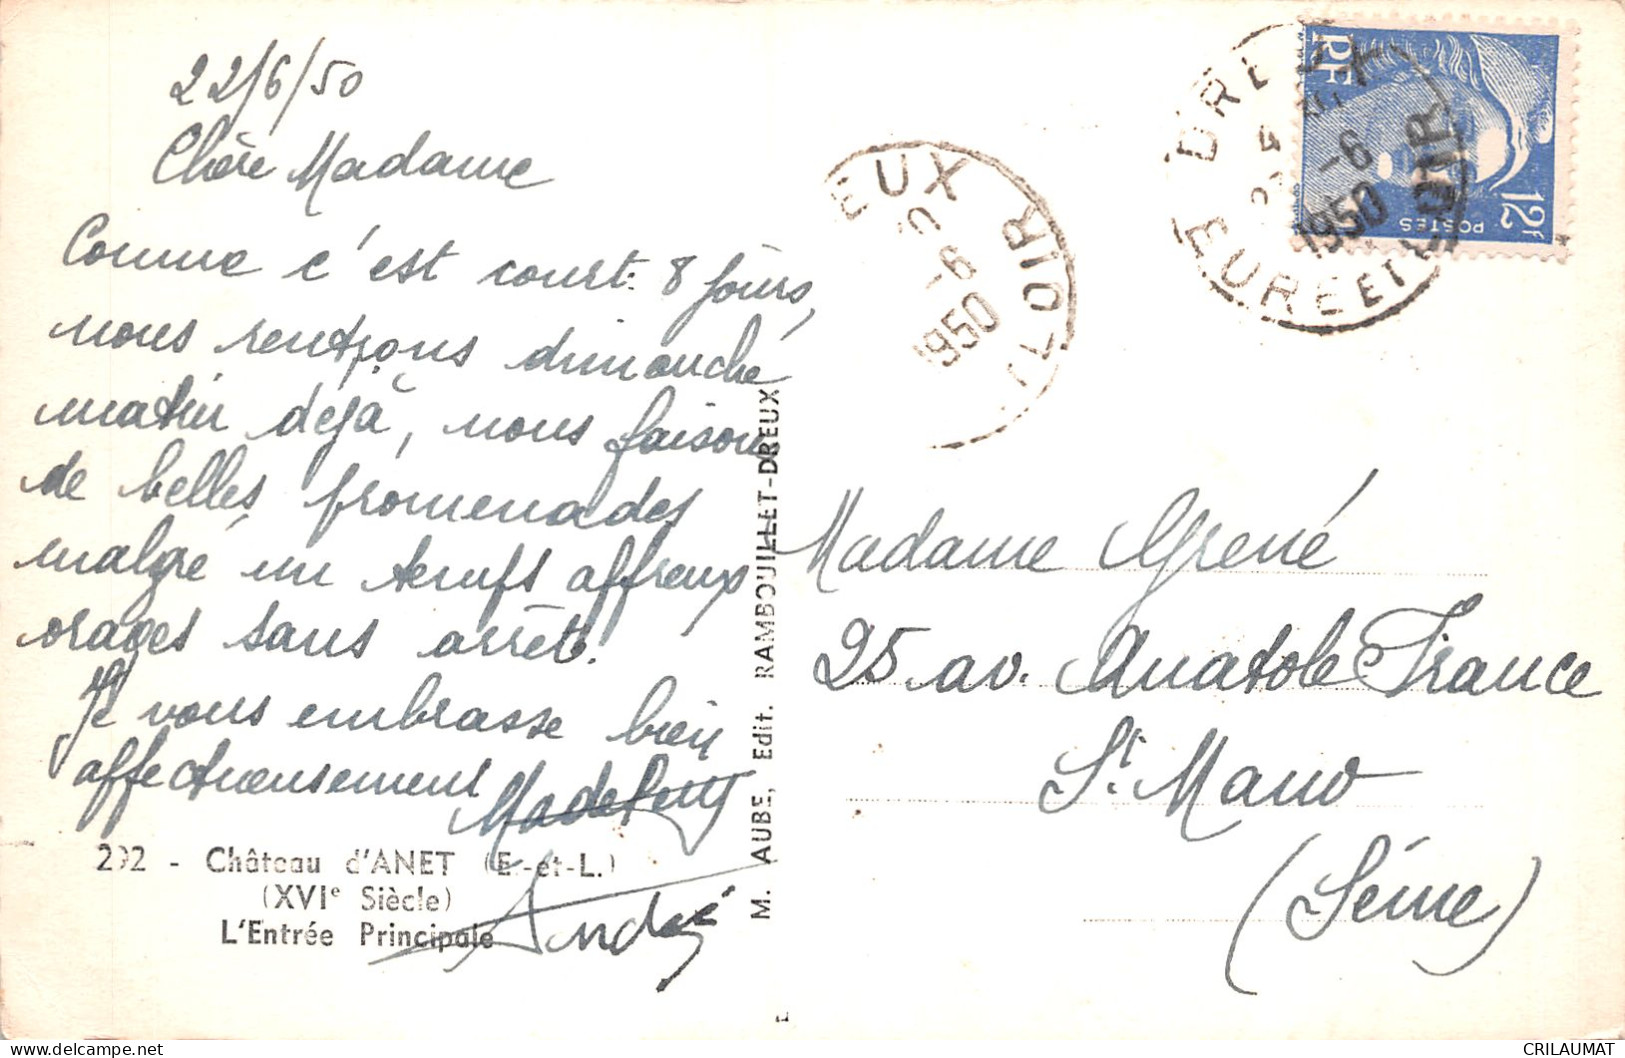 22/6/50
Chère Madame
Comme c'est court: 8 jours,
nous rentrons dimanche
matin déjà, nous faisons
de belles promenades
malgré un temps affreux
orages sans arrêt.
Je vous embrasse bien
affectueusement
André
292 - Château d'ANET (E.-et-L.)
(XVIe Siècle)
L'Entrée Principale
M. AUBE, Edit. RAMBOUILLET-DREUX
EUX
-6
1950
LOIR
DREUX
-6
1950
EURE ET LOIR
RF
POSTES
12F
Madame Grené
25 av. Anatole France
St. Maur
(Seine)
CRILAUMAT